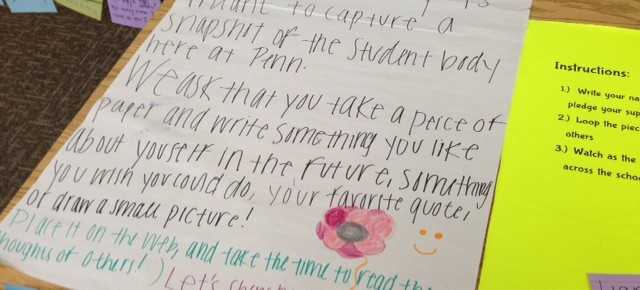 to capture a
snapshot of the student body
here at Penn.
We ask that you take a peice of
paper and write something you like
about yourself in the future, something
you wish you could do, your favorite quote,
or draw a small picture!
Place it on the web, and take the time to read the
thoughts of others! ) Let's
Instructions:
1.) Write your
pledge your
2.) Loop the
others
3.) Watch as the
across the